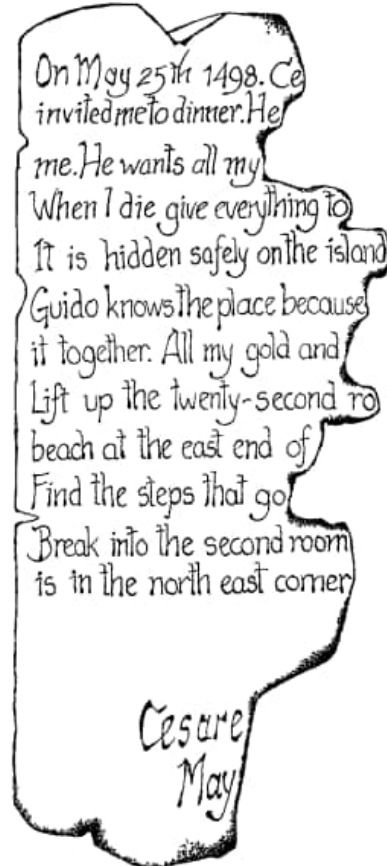 On May 25th 1498. Ce
invited me to dinner. He
me. He wants all my
When I die give everything to
It is hidden safely on the island
Guido knows the place because
it together. All my gold and
Lift up the twenty-second ro
beach at the east end of
Find the steps that go
Break into the second room
is in the north east corner
Cesare
May